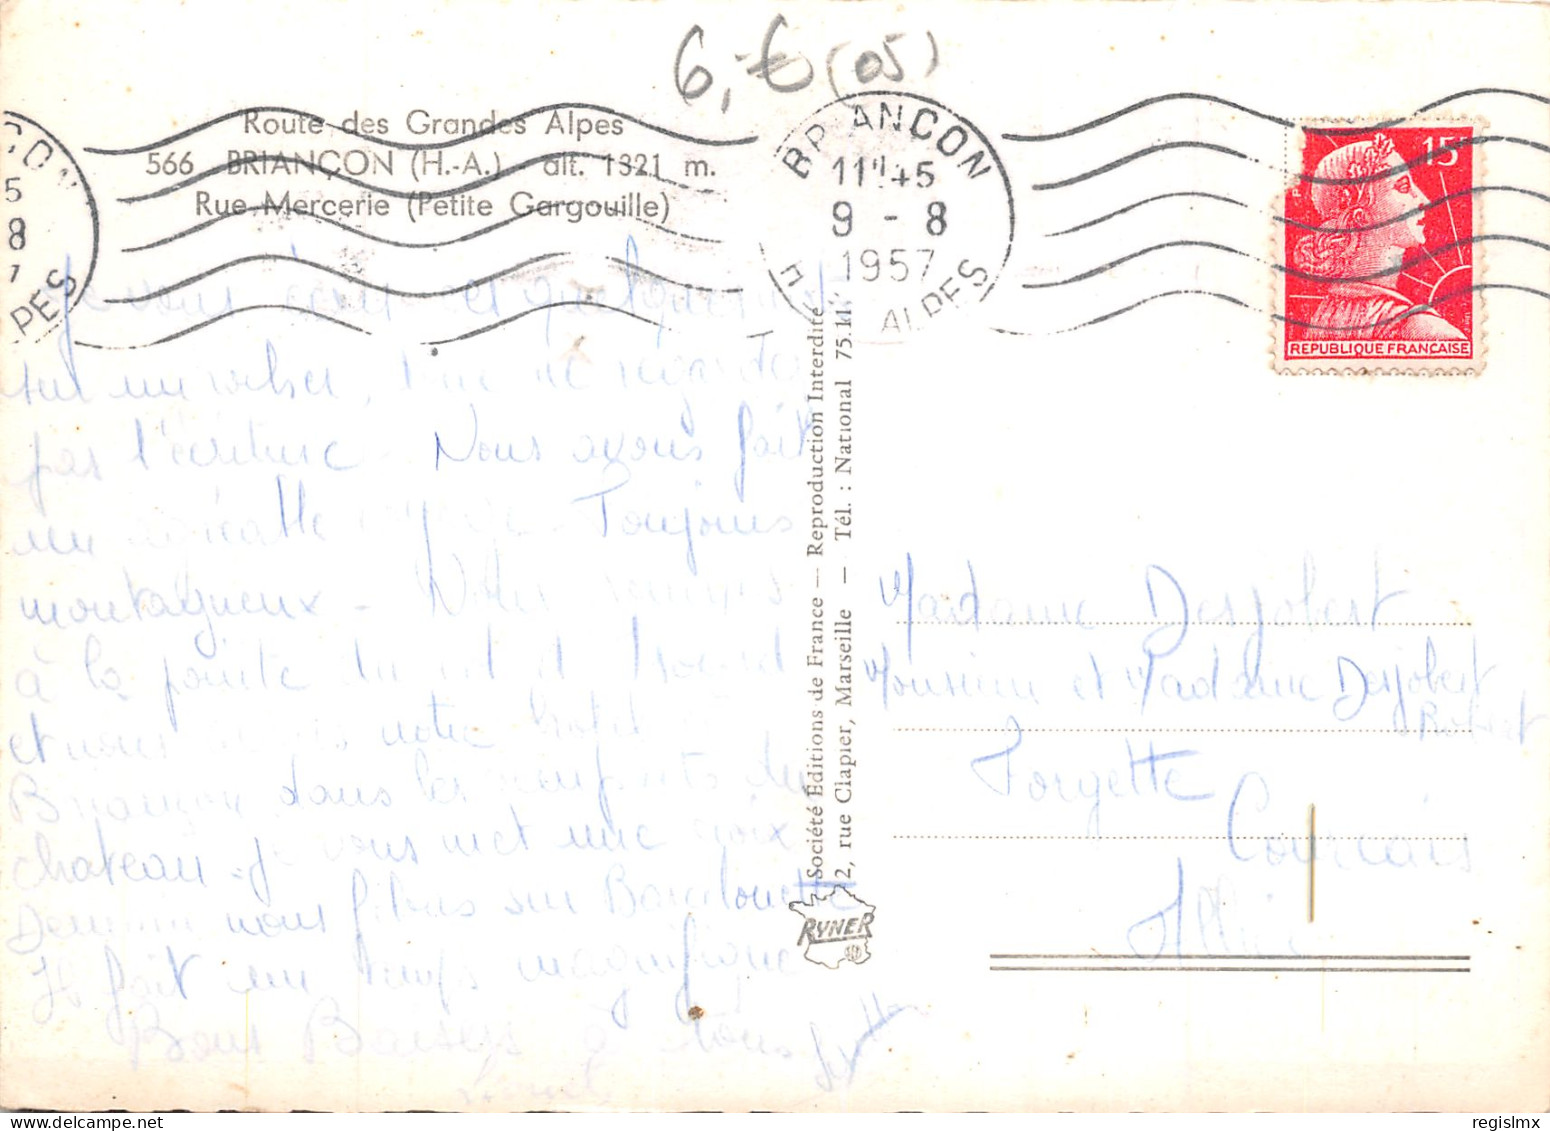 6,-€ (05)
Route des Grandes Alpes
566 BRIANÇON (H.-A.) alt. 1321 m.
Rue Mercerie (Petite Gargouille)
BRIANCON
11H45
9 - 8
1957
H ALPES
15
REPUBLIQUE FRANÇAISE
Je vous écris et quelques
sur un rocher, ne regardez
pas l'écriture. Nous avons fait
un agréable voyage. Toujours
montagneux - Nous sommes
à la pointe du col d'Izoard
et nous notre hotel à
Briançon dans les remparts du
chateau. Je vous met une croix
Demain nous filons sur Barcelonette
Il fait un temps magnifique
Bons Baisers à tous
Société Editions de France — Reproduction Interdite
2, rue Clapier, Marseille — Tél. : National 75.11
RYNER
Madame Desjobert
Monsieur et Madame Desjobert
Robert
Forgette
Courçais
Allier
regislmx